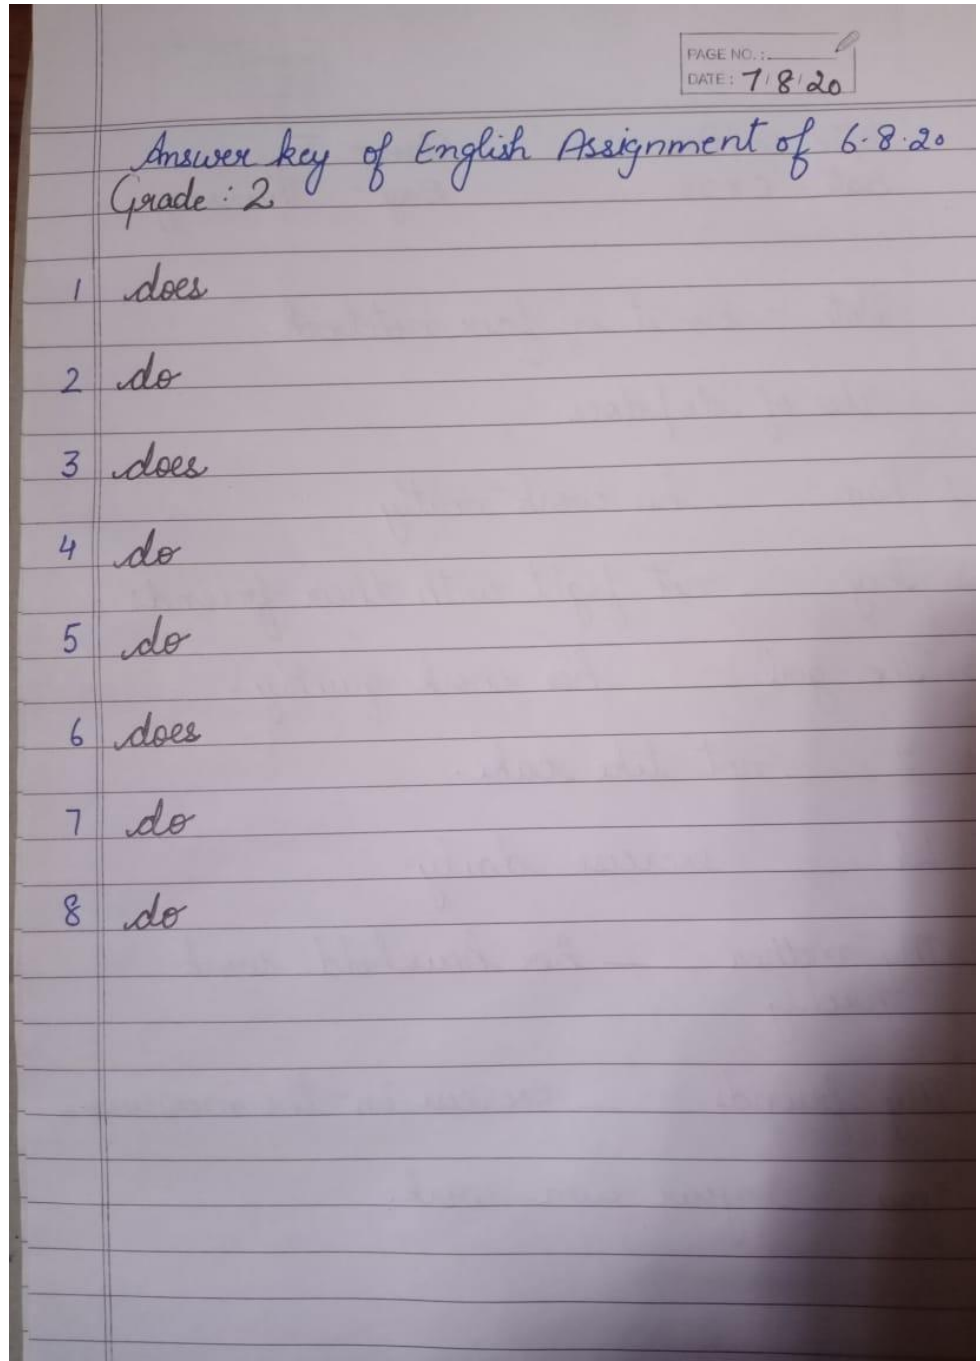 PAGE NO.:
DATE: 7/8/20
Answer key of English Assignment of 6.8.20
Grade : 2
1 does
2 do
3 does
4 do
5 do
6 does
7 do
8 do